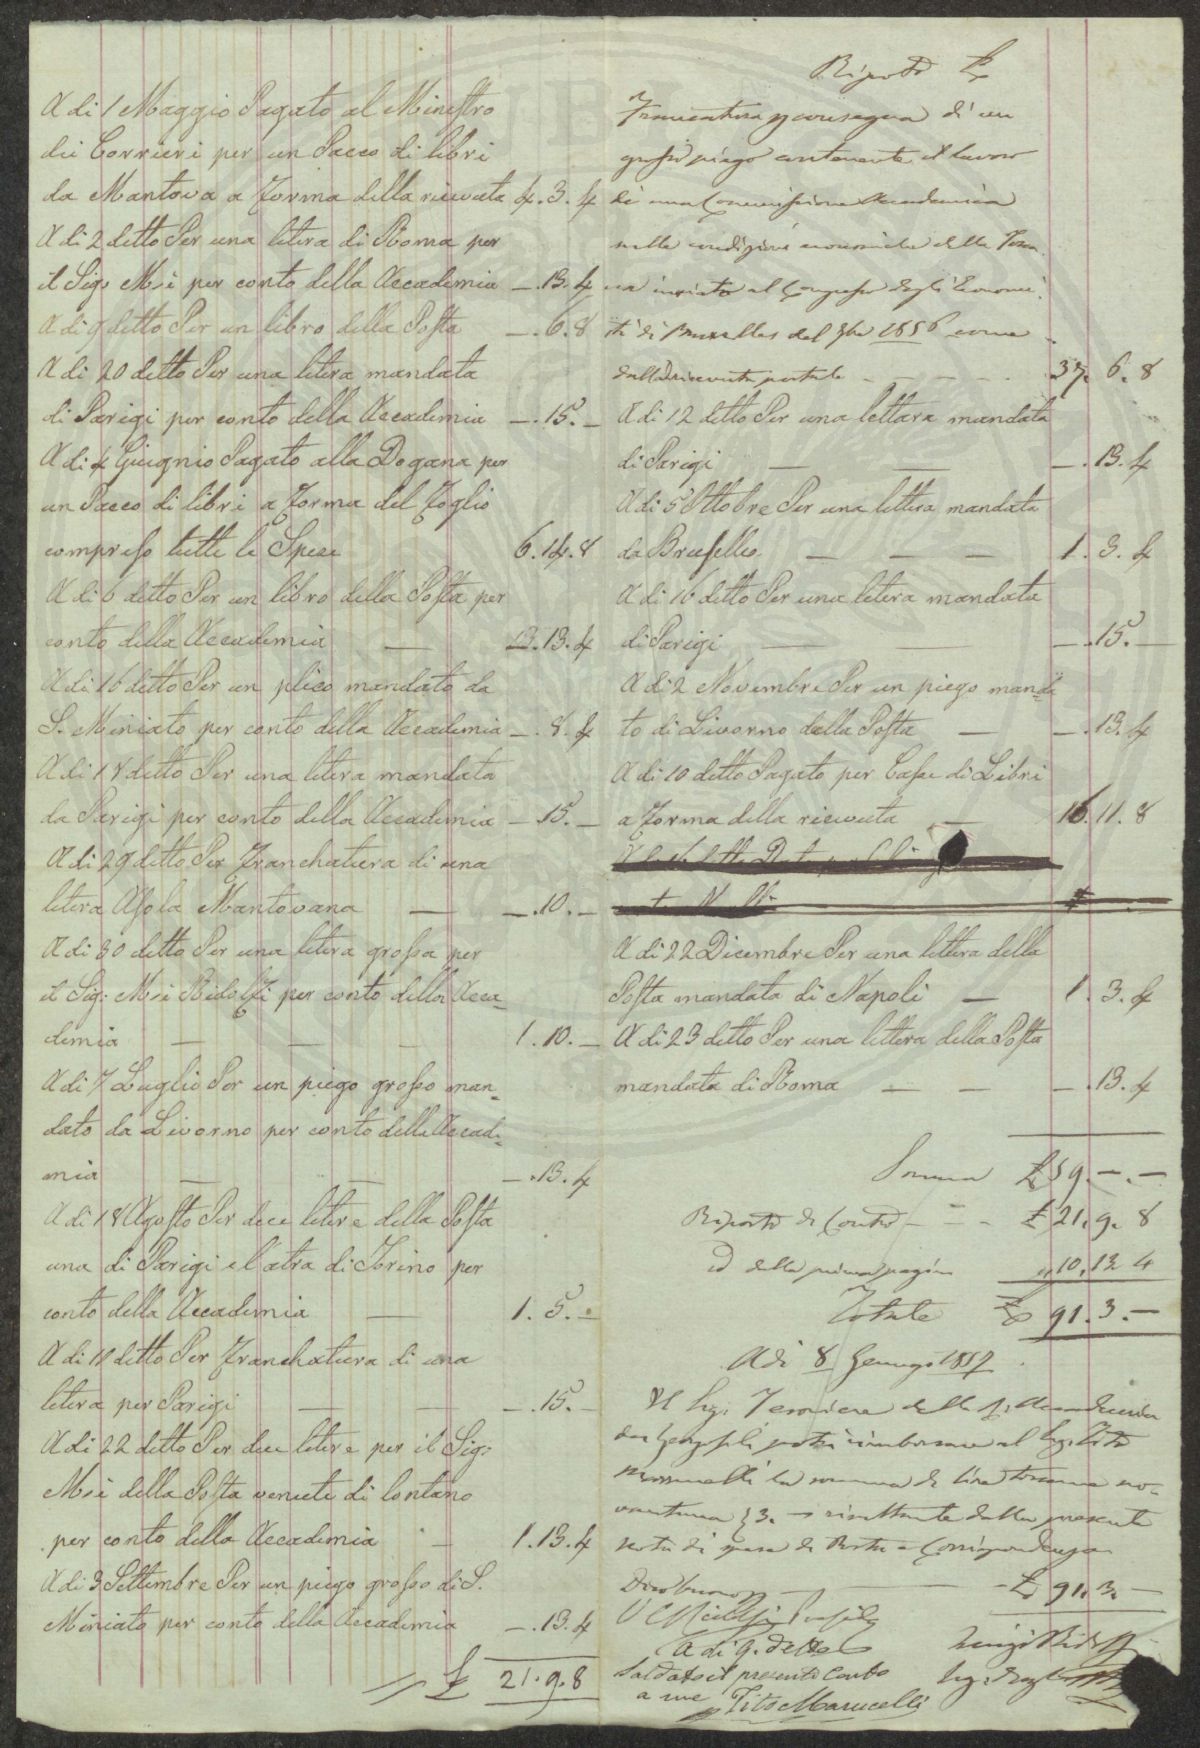 A di 1 Maggio Pagato al Ministro
dei Corrieri per un Pacco di libri
da Mantova a forma della ricevuta 4.3.4
A di 2 detto Per una letera di Roma per
il Sig. Mse per conto della Accademia — .13.4
A di 9 detto Per un libro della Posta — .6.8
A di 20 detto Per una letera mandata
di Parigi per conto della Accademia — .15.—
A di 4 Giugnio Pagato alla Dogana per
un Pacco di libri a forma del foglio
compreso tutte le Spese 6.14.8
A di 6 detto Per un libro della Posta per
conto della Accademia — .13.4
A di 16 detto Per un plico mandato da
S. Miniato per conto della Accademia — .8.4
A di 18 detto Per una letera mandata
da Parigi per conto della Accademia — .15.—
A di 29 detto Per franchatura di una
letera Asola Mantovana — — .10.—
A di 30 detto Per una letera grossa per
il Sig: Mse Ridolfi per conto della Acca-
demia — — — 1.10.—
A di 7 Luglio Per un piego grosso man-
dato da Livorno per conto della Accade-
mia — — — .13.4
A di 18 Agosto Per dece letere della Posta
una di Parigi e l'atra di Torino per
conto della Accademia — 1.5.—
A di 11 detto Per franchatura di una
letera per Parigi — — — .15.—
A di 22 detto Per dece letere per il Sig:
Mse della Posta venute di lontano
per conto della Accademia — 1.13.4
A di 3 Settembre Per un piego grosso di S.
Miniato per conto della Accademia — .13.4
£ 21.9.8
Riporto £
Francatura consegna di un
grosso piego contenente il lavoro
di una Commissione Accademica
sulle condizioni economiche della Tosca
na inviato al Congresso degli Economi
sti di Bruxelles del 7bre 1856 come
dalla ricevuta postale — — — 37. 6.8
A di 12 detto Per una lettara mandata
di Parigi — — — .13.4
A di 5 Ottobre Per una lettera mandata
da Bruselles — — — 1.3.4
A di 16 detto Per una letera mandata
di Parigi — — — .15.—
A di 2 Novembre Per un piego manda-
to di Livorno della Posta — — .13.4
A di 10 detto Pagato per Casse di Libri
a forma della ricevuta — 16.11.8
A di 22 Dicembre Per una lettera della
Posta mandata di Napoli — 1.3.4
A di 23 detto Per una lettera della Posta
mandata di Roma — — — .13.4
Somma £ 59.—.—
Riporto di Contro — — £ 21.9.8
id della prima pagina „ 10.13 4
Totale £ 91.3.—
Adi 8 Gennajo 1857.
Il Sig. Tesoriere della R. Accademia
dei Georgofili potrà rimborsare al Sig. Tito
Marucelli la somma di lire toscane no-
vantuna £ 3. — risultante dalla presente
nota di spese di Posta e Corrispondenza
Dico buono — — — £ 91.3.—
A di 9. detto
Luigi Ridolfi
Saldato il presente Conto
a me Tito Marucelli